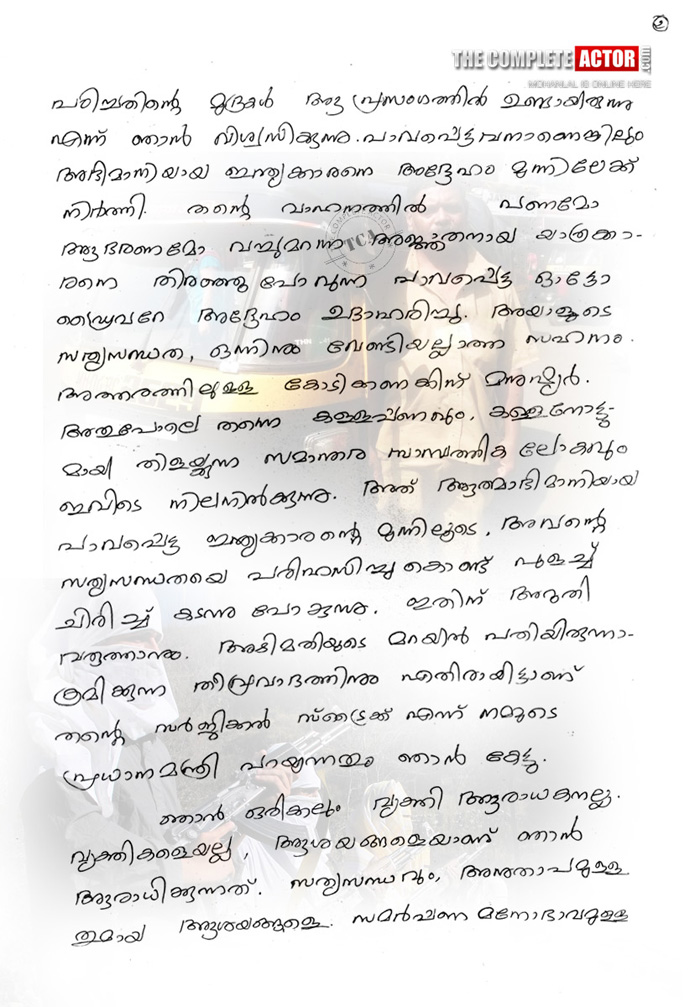 ൭
THE COMPLETE ACTOR .com
MOHANLAL IS ONLINE HERE
പഠിച്ചതിന്റെ മുദ്രകൾ ആ പ്രസംഗത്തിൽ ഉണ്ടായിരുന്നു
എന്ന് ഞാൻ വിശ്വസിക്കുന്നു. പാവപ്പെട്ടവനാണെങ്കിലും
അഭിമാനിയായ ഇന്ത്യക്കാരനെ അദ്ദേഹം മുന്നിലേക്ക്
നിർത്തി. തന്റെ വാഹനത്തിൽ പണമോ
ആഭരണമോ വച്ചുമറന്ന അജ്ഞാതനായ യാത്രക്കാ-
രനെ തിരഞ്ഞു പോവുന്ന പാവപ്പെട്ട ഓട്ടോ
ഡ്രൈവറേ അദ്ദേഹം ഉദാഹരിച്ചു. അയാളുടെ
സത്യസന്ധത, ഒന്നിനും വേണ്ടിയല്ലാത്ത സഹനം.
അത്തരത്തിലുള്ള കോടിക്കണക്കിന് മനുഷ്യർ.
അതുപോലെ തന്നെ കള്ളപ്പണവും, കള്ളനോട്ടു-
മായി തിളയ്ക്കുന്ന സമാന്തര സാമ്പത്തിക ലോകവും
ഇവിടെ നിലനിൽക്കുന്നു. അത് ആത്മാഭിമാനിയായ
പാവപ്പെട്ട ഇന്ത്യക്കാരന്റെ മുന്നിലൂടെ, അവന്റെ
സത്യസന്ധതയെ പരിഹസിച്ചു കൊണ്ട് പുളച്ച്
ചിരിച്ച് കടന്നു പോകുന്നു. ഇതിന് അറുതി
വരുത്താനും. അതിർത്തിയുടെ മറയിൽ പതിയിരുന്നാ-
ക്രമിക്കുന്ന തീവ്രവാദത്തിനും എതിരായിട്ടാണ്
തന്റെ സർജിക്കൽ സ്ട്രൈക്ക് എന്ന് നമ്മുടെ
പ്രധാനമന്ത്രി പറയുന്നതും ഞാൻ കേട്ടു.
ഞാൻ ഒരിക്കലും വ്യക്തി ആരാധകനല്ല.
വ്യക്തികളെയല്ല, ആശയങ്ങളെയാണ് ഞാൻ
ആരാധിക്കുന്നത്. സത്യസന്ധവും, അനുതാപമുള്ള
തുമായ ആശയങ്ങളെ. സമർപ്പണ മനോഭാവമുള്ള